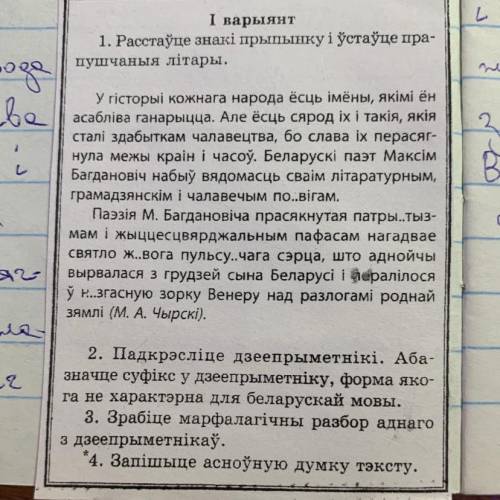 І варыянт
1. Расстаўце знакі прыпынку і ўстаўце пра-
пушчаныя літары.
У гісторыі кожнага народа ёсць імёны, якімі ён
асабліва ганарыцца. Але ёсць сярод іх і такія, якія
сталі здабыткам чалавецтва, бо слава іх перасяг-
нула межы краін і часоў. Беларускі паэт Максім
Багдановіч набыў вядомасць сваім літаратурным,
грамадзянскім і чалавечым по..вігам.
Паэзія М. Багдановіча прасякнутая патры..тыз-
мам і жыццесцвярджальным пафасам нагадвае
святло ж..вога пульсу..чага сэрца, што аднойчы
вырвалася з грудзей сына Беларусі і ператварылося
ў н..згасную зорку Венеру над разлогамі роднай
зямлі (М. А. Чырскі).
2. Падкрэсліце дзеепрыметнікі. Аба-
значце суфікс у дзеепрыметніку, форма яко-
га не характэрна для беларускай мовы.
3. Зрабіце марфалагічны разбор аднаго
з дзеепрыметнікаў.
*4. Запішыце асноўную думку тэксту.